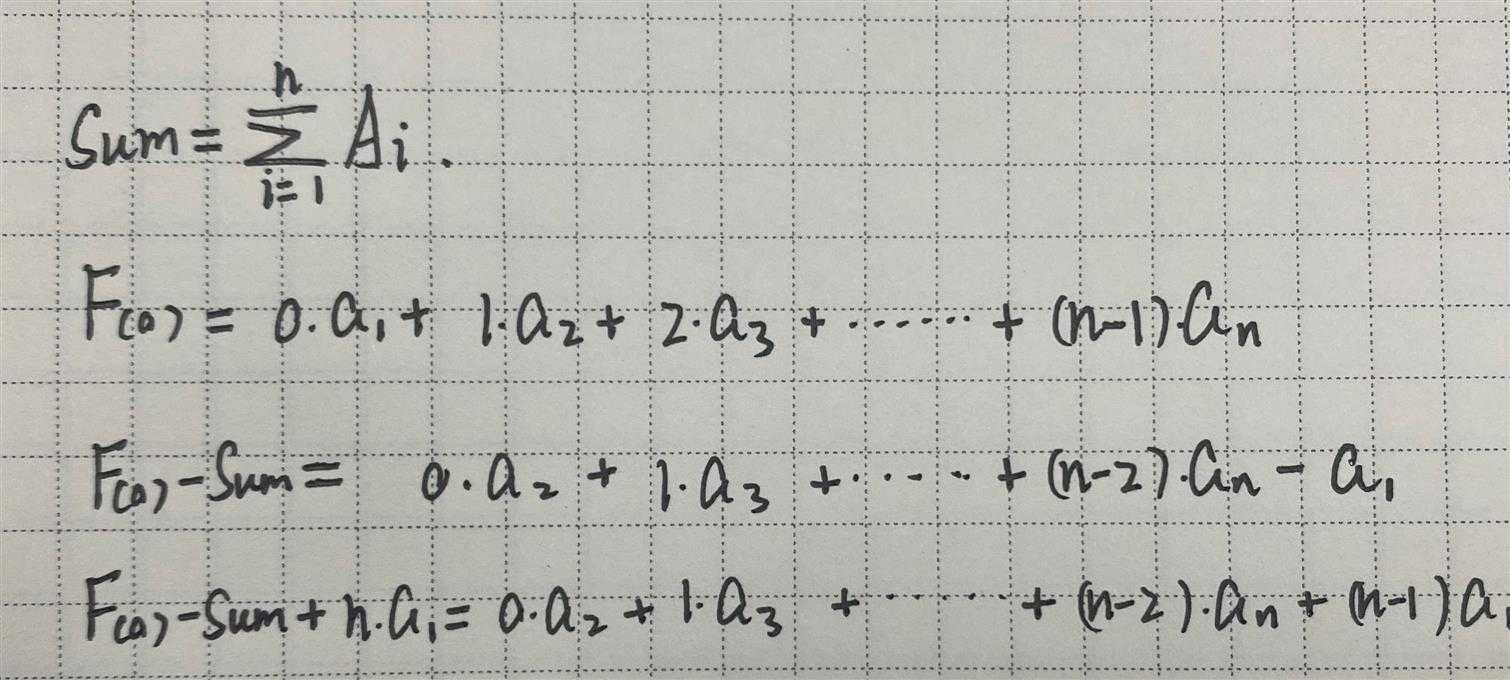 Sum = \sum_{i=1}^{n} A_i.
F(0) = 0·a₁ + 1·a₂ + 2·a₃ + ······ + (n-1)·aₙ
F(0) - Sum = 0·a₂ + 1·a₃ + ······ + (n-2)·aₙ - a₁
F(0) - Sum + n·a₁ = 0·a₂ + 1·a₃ + ······ + (n-2)·aₙ + (n-1)a₁